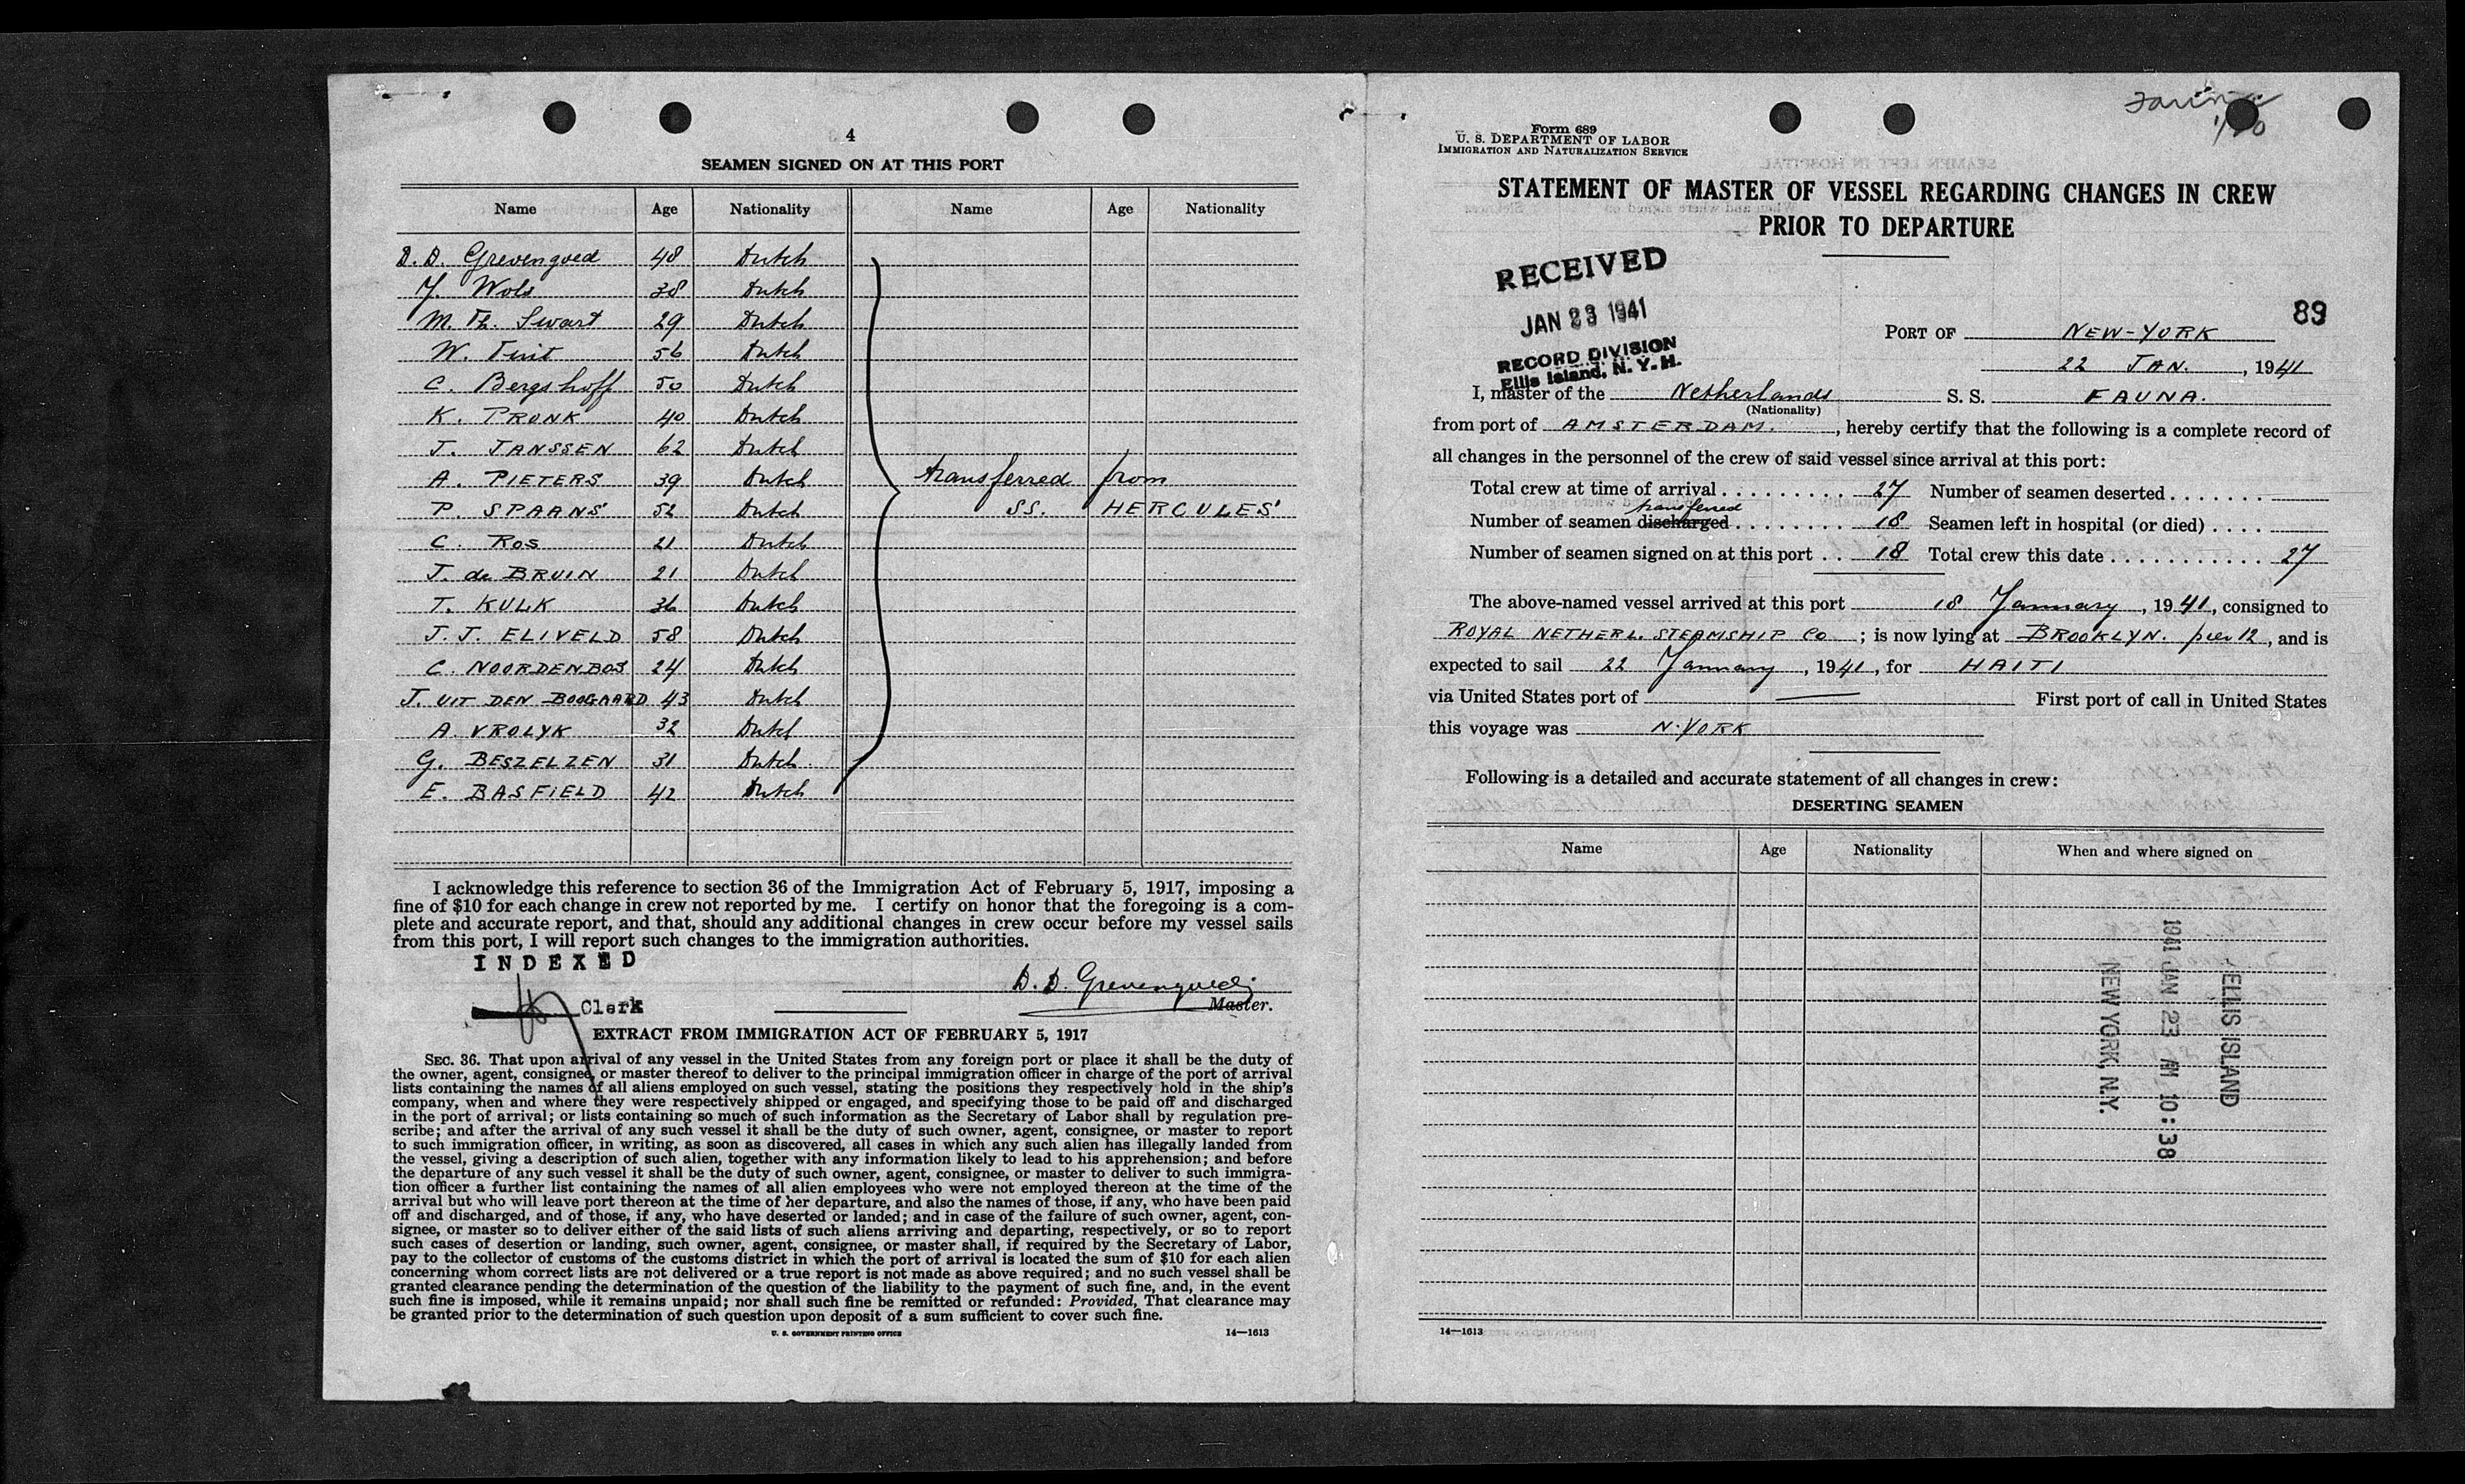 4
SEAMEN SIGNED ON AT THIS PORT
Name Age Nationality Name Age Nationality
D. D. Grevengoed 48 Dutch
J. Wols 38 Dutch
M. Th. Swart 29 Dutch
W. 56 Dutch
C. Bergshoff 50 Dutch
K. PRONK 40 Dutch
J. JANSSEN 62 Dutch
A. PIETERS 39 Dutch transferred from
P. SPAANS 52 Dutch SS. HERCULES'
C. ROS 21 Dutch
J. de BRUIN 21 Dutch
T. KULK 36 Dutch
J. J. ELIVELD 58 Dutch
C. NOORDENBOS 24 Dutch
J. UIT DEN BOOGAARD 43 Dutch
A. VROLYK 32 Dutch
G. BESZELZEN 31 Dutch
E. BASFIELD 42 Dutch
I acknowledge this reference to section 36 of the Immigration Act of February 5, 1917, imposing a
fine of $10 for each change in crew not reported by me. I certify on honor that the foregoing is a com-
plete and accurate report, and that, should any additional changes in crew occur before my vessel sails
from this port, I will report such changes to the immigration authorities.
INDEXED
D. D. Grevengoed
Clerk
Master.
EXTRACT FROM IMMIGRATION ACT OF FEBRUARY 5, 1917
SEC. 36. That upon arrival of any vessel in the United States from any foreign port or place it shall be the duty of
the owner, agent, consignee, or master thereof to deliver to the principal immigration officer in charge of the port of arrival
lists containing the names of all aliens employed on such vessel, stating the positions they respectively hold in the ship's
company, when and where they were respectively shipped or engaged, and specifying those to be paid off and discharged
in the port of arrival; or lists containing so much of such information as the Secretary of Labor shall by regulation pre-
scribe; and after the arrival of any such vessel it shall be the duty of such owner, agent, consignee, or master to report
to such immigration officer, in writing, as soon as discovered, all cases in which any such alien has illegally landed from
the vessel, giving a description of such alien, together with any information likely to lead to his apprehension; and before
the departure of any such vessel it shall be the duty of such owner, agent, consignee, or master to deliver to such immigra-
tion officer a further list containing the names of all alien employees who were not employed thereon at the time of the
arrival but who will leave port thereon at the time of her departure, and also the names of those, if any, who have been paid
off and discharged, and of those, if any, who have deserted or landed; and in case of the failure of such owner, agent, con-
signee, or master so to deliver either of the said lists of such aliens arriving and departing, respectively, or so to report
such cases of desertion or landing, such owner, agent, consignee, or master shall, if required by the Secretary of Labor,
pay to the collector of customs of the customs district in which the port of arrival is located the sum of $10 for each alien
concerning whom correct lists are not delivered or a true report is not made as above required; and no such vessel shall be
granted clearance pending the determination of the question of the liability to the payment of such fine, and, in the event
such fine is imposed, while it remains unpaid; nor shall such fine be remitted or refunded: Provided, That clearance may
be granted prior to the determination of such question upon deposit of a sum sufficient to cover such fine.
U. S. GOVERNMENT PRINTING OFFICE 14—1613
Form 689
U. S. DEPARTMENT OF LABOR
IMMIGRATION AND NATURALIZATION SERVICE
STATEMENT OF MASTER OF VESSEL REGARDING CHANGES IN CREW
PRIOR TO DEPARTURE
RECEIVED
JAN 23 1941
RECORD DIVISION
Ellis Island, N. Y. H.
89
PORT OF NEW-YORK
22 JAN., 1941
I, master of the Netherlands S. S. FAUNA.
(Nationality)
from port of AMSTERDAM., hereby certify that the following is a complete record of
all changes in the personnel of the crew of said vessel since arrival at this port:
Total crew at time of arrival . . . . . . . . . 27 Number of seamen deserted . . . . . . .
transferred
Number of seamen discharged . . . . . . . . 18 Seamen left in hospital (or died) . . . .
Number of seamen signed on at this port . . 18 Total crew this date . . . . . . . . . . . 27
The above-named vessel arrived at this port 18 January, 1941, consigned to
ROYAL NETHERL. STEAMSHIP Co; is now lying at BROOKLYN. pier 12, and is
expected to sail 22 January, 1941, for HAITI
via United States port of — First port of call in United States
this voyage was N-YORK
Following is a detailed and accurate statement of all changes in crew:
DESERTING SEAMEN
Name Age Nationality When and where signed on
ELLIS ISLAND
1941 JAN 23 AM 10:38
NEW YORK, N.Y.
14—1613